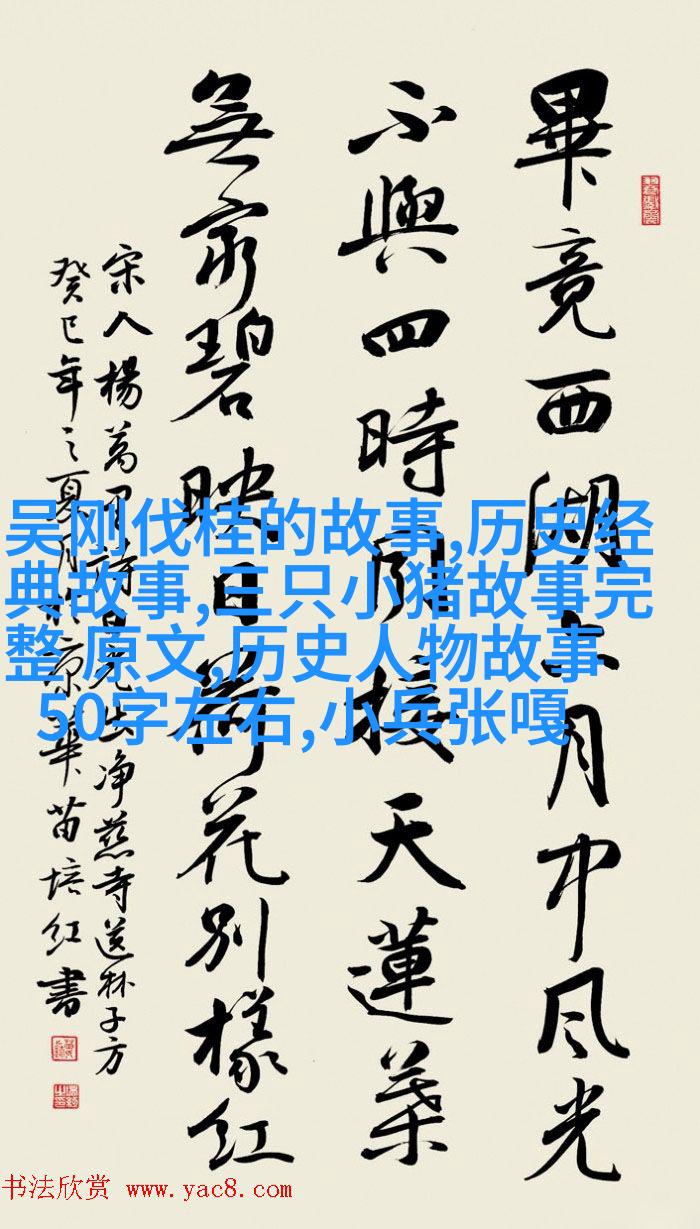 畢竟西湖六月中风光
不與四時同接天蓮葉
無窮碧映日荷花别樣红
宋人楊萬里詩曉出净慈寺送林子方
癸巳年之夏月於京華苗培红書
吴刚伐桂的故事,历史经
典故事,三只小猪故事完
整 原文,历史人物故事
50字左右,小兵张嘎
书法欣赏 www.yac8.com